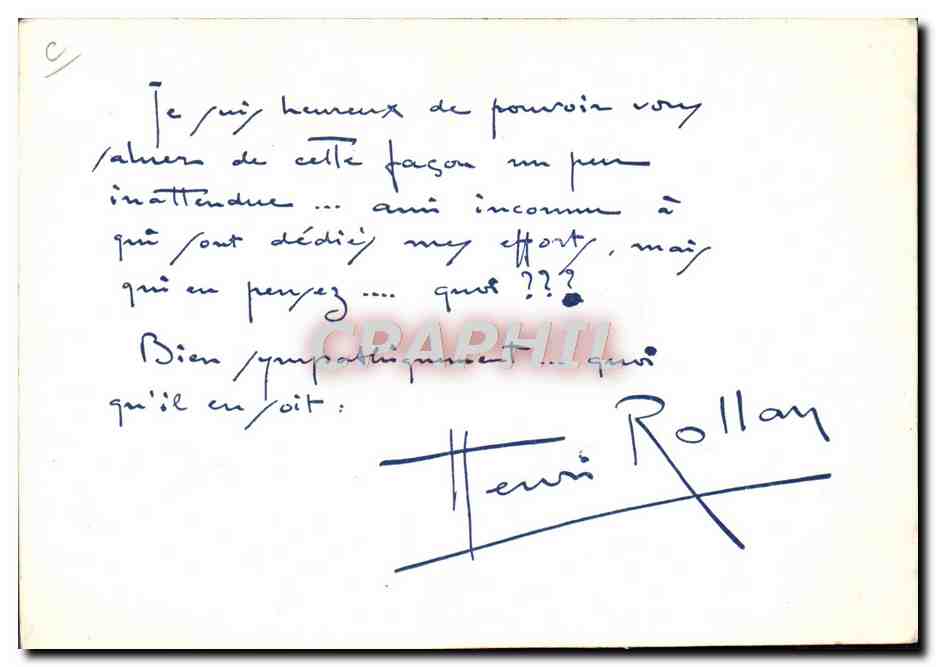 C
Je suis heureux de pouvoir vous
saluer de cette façon un peu
inattendue ... ami inconnu à
qui sont dédiés mes efforts, mais
qui en pensez .... quoi ???
CPAPHIL
Bien sympathiquement ... quoi
qu'il en soit :
Henri Rollan